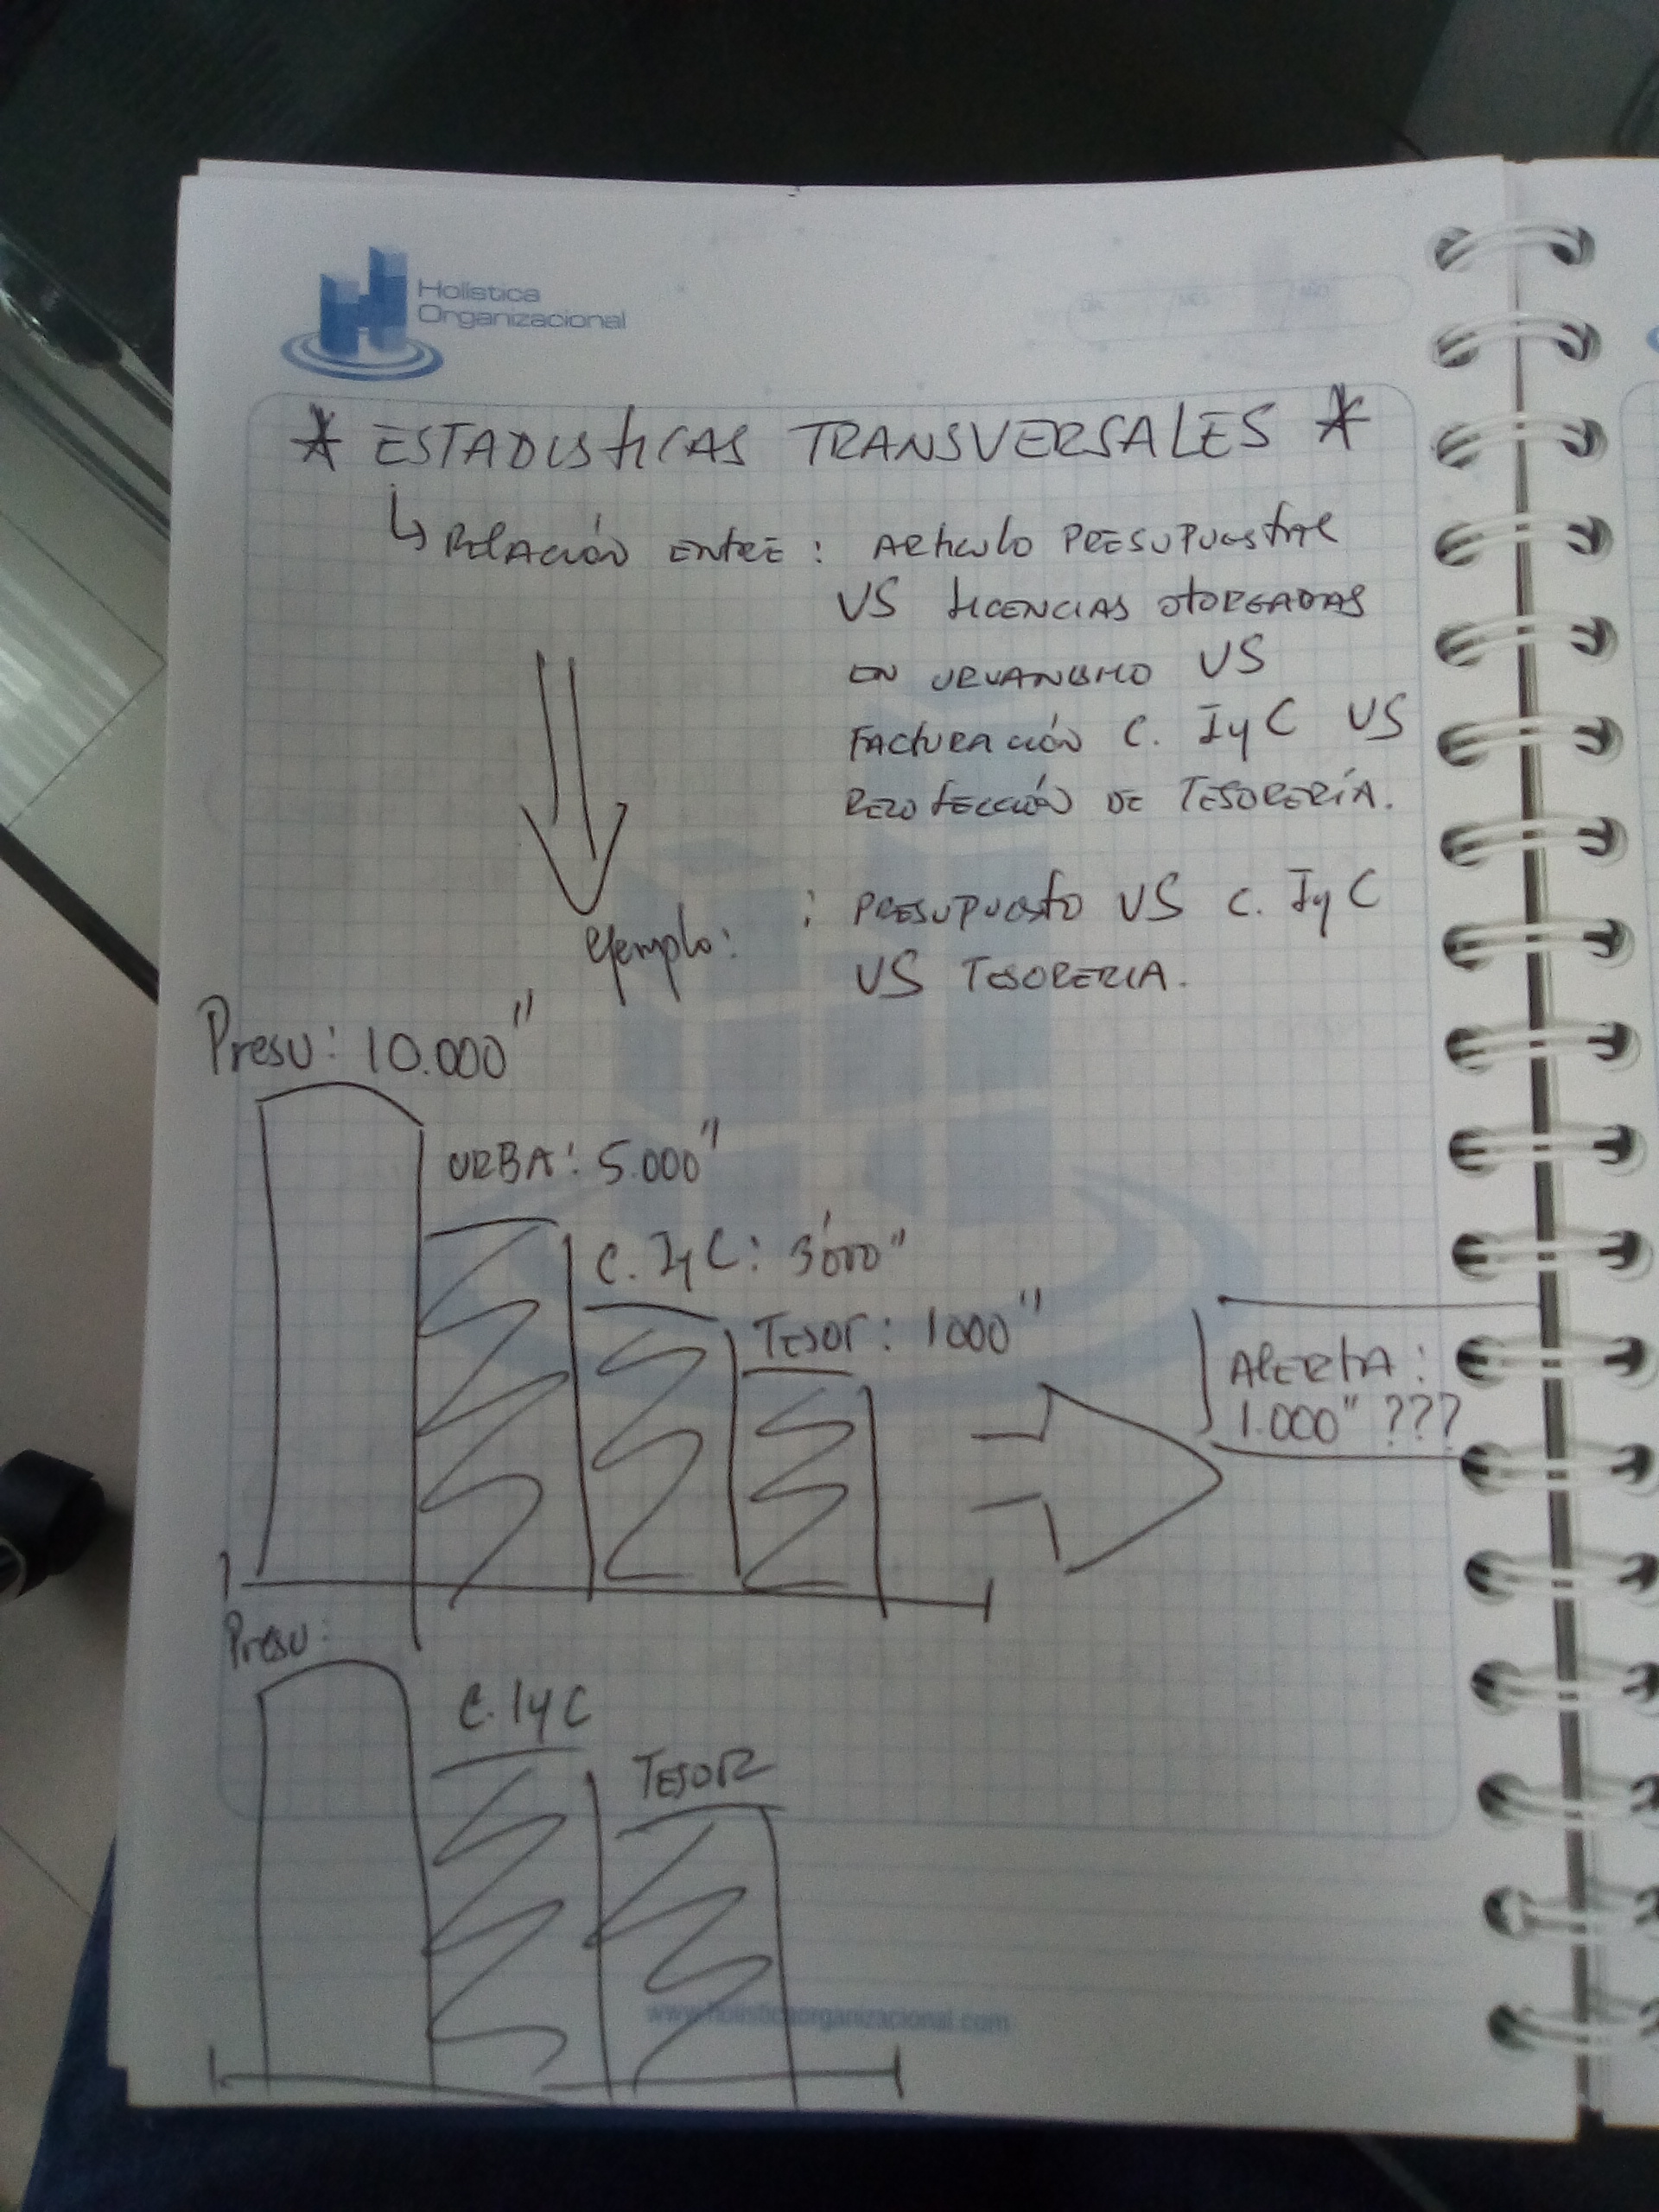 Holística
Organizacional
* ESTADISTICAS TRANSVERSALES *
↳ RELACIÓN ENTRE : ARTICULO PRESUPUESTAL
VS LICENCIAS OTORGADAS
EN URVANISMO VS
FACTURACIÓN C. IyC VS
RECOLECCIÓN DE TESORERÍA.
Ejemplo: : PRESUPUESTO VS C. IyC
VS TESORERIA.
Presu: 10.000"
URBA: 5.000"
C. IyC: 3'000"
TESOR: 1000"
ALERTA:
1.000" ???
Presu:
C. IyC
TESOR
www.holisticaorganizacional.com